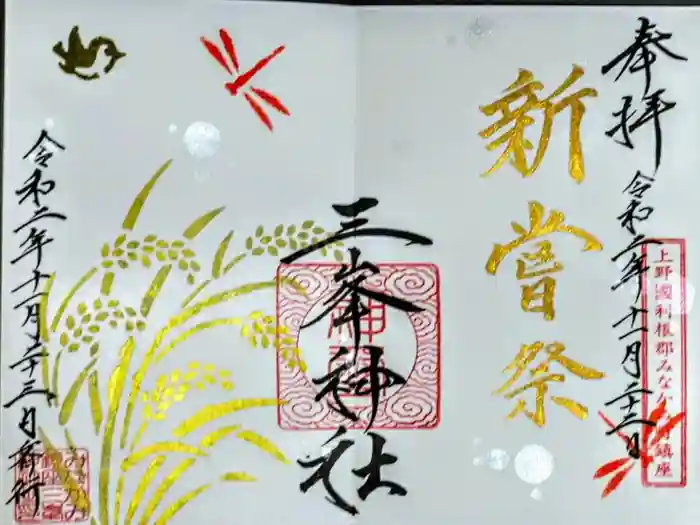 奉拝
令和二年十一月二十三日
上野國利根郡みなかみ町鎮座
新嘗祭
三峯神社
令和二年十一月二十三日